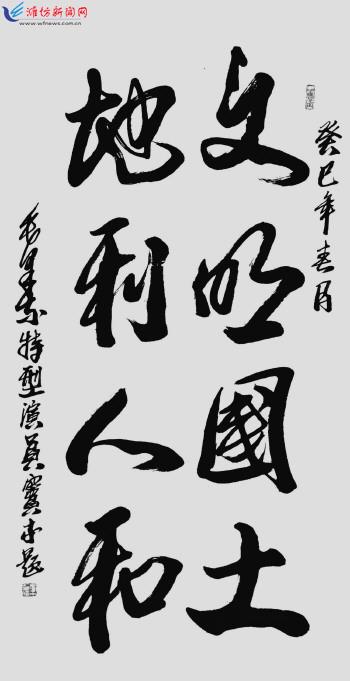 潍坊新闻网
www.wfnews.com.cn
癸巳年春月
文明國土
地利人和
特型演員竇